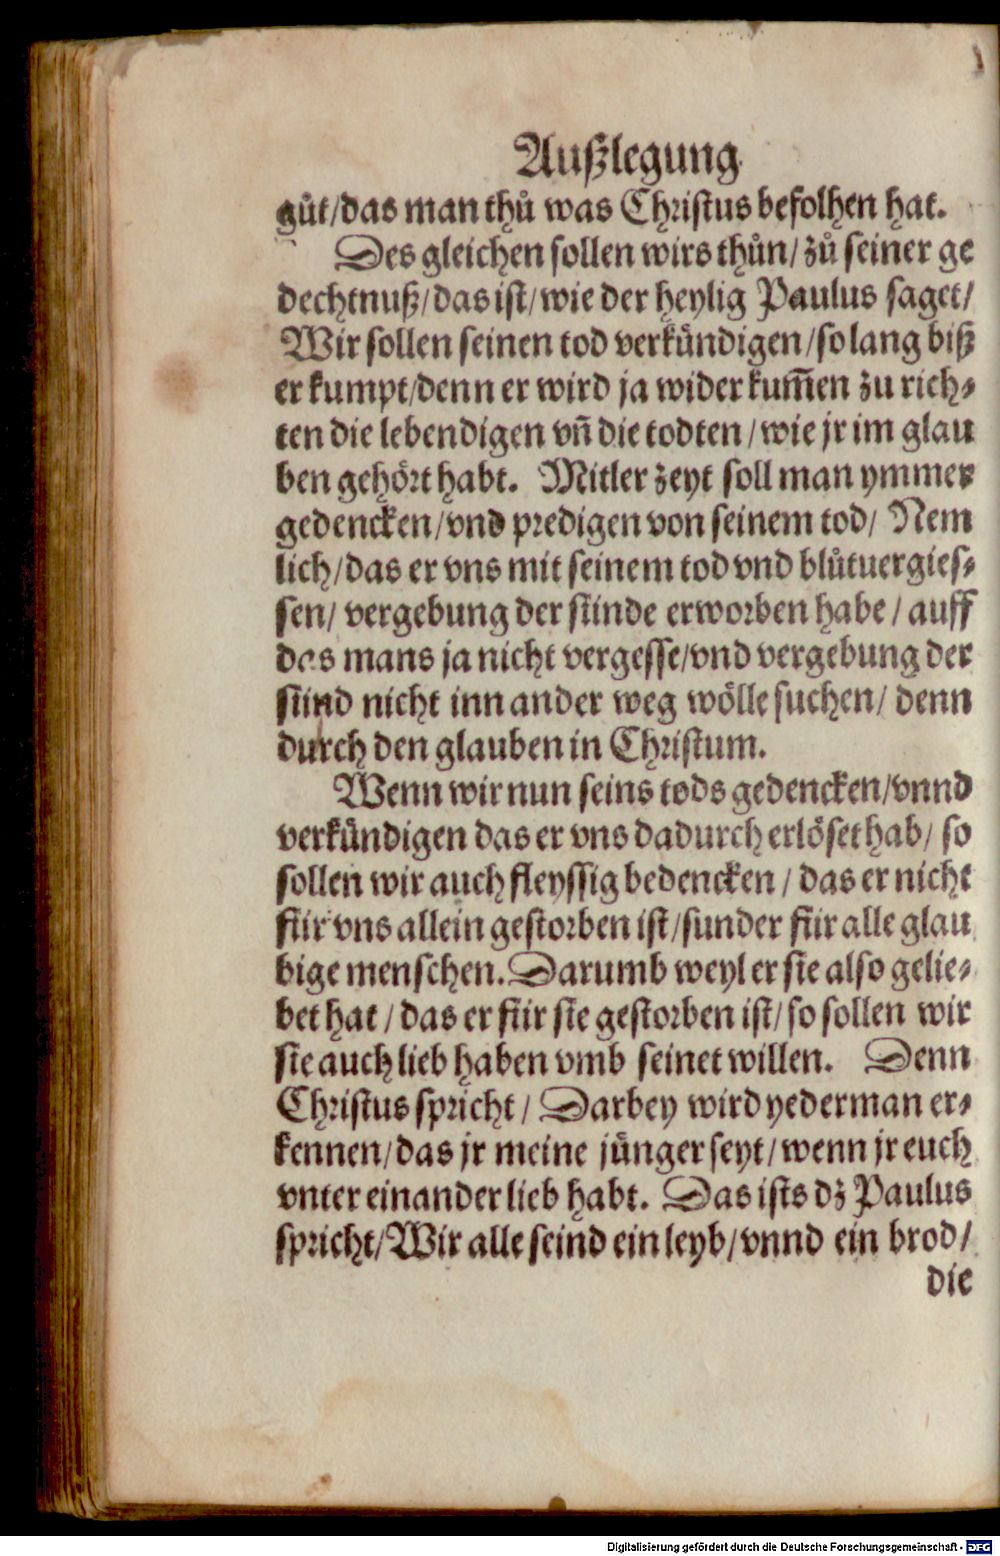 Außlegung
gůt/das man thů was Christus befolhen hat.
Des gleichen sollen wirs thůn/ zů seiner ge
dechtnuß/das ist/wie der heylig Paulus saget/
Wir sollen seinen tod verkündigen/so lang biß
er kumpt/denn er wird ja wider kum̃en zu rich⸗
ten die lebendigen vñ die todten/wie jr im glau
ben gehört habt. Mitler zeyt soll man ymmer
gedencken/vnd predigen von seinem tod/ Nem
lich/das er vns mit seinem tod vnd blůtuergies⸗
sen/ vergebung der sünde erworben habe/ auff
das mans ja nicht vergesse/vnd vergebung der
sünd nicht inn ander weg wölle suchen/ denn
durch den glauben in Christum.
Wenn wir nun seins tods gedencken/vnnd
verkündigen das er vns dadurch erlöset hab/ so
sollen wir auch fleyssig bedencken/ das er nicht
für vns allein gestorben ist/sunder für alle glau
bige menschen. Darumb weyl er sie also gelie⸗
bet hat/ das er für sie gestorben ist/ so sollen wir
sie auch lieb haben vmb seinet willen. Denn
Christus spricht/ Darbey wird yederman er⸗
kennen/das jr meine jünger seyt/wenn jr euch
vnter einander lieb habt. Das ists dz Paulus
spricht/Wir alle seind ein leyb/vnnd ein brod/
die
Digitalisierung gefördert durch die Deutsche Forschungsgemeinschaft - DFG